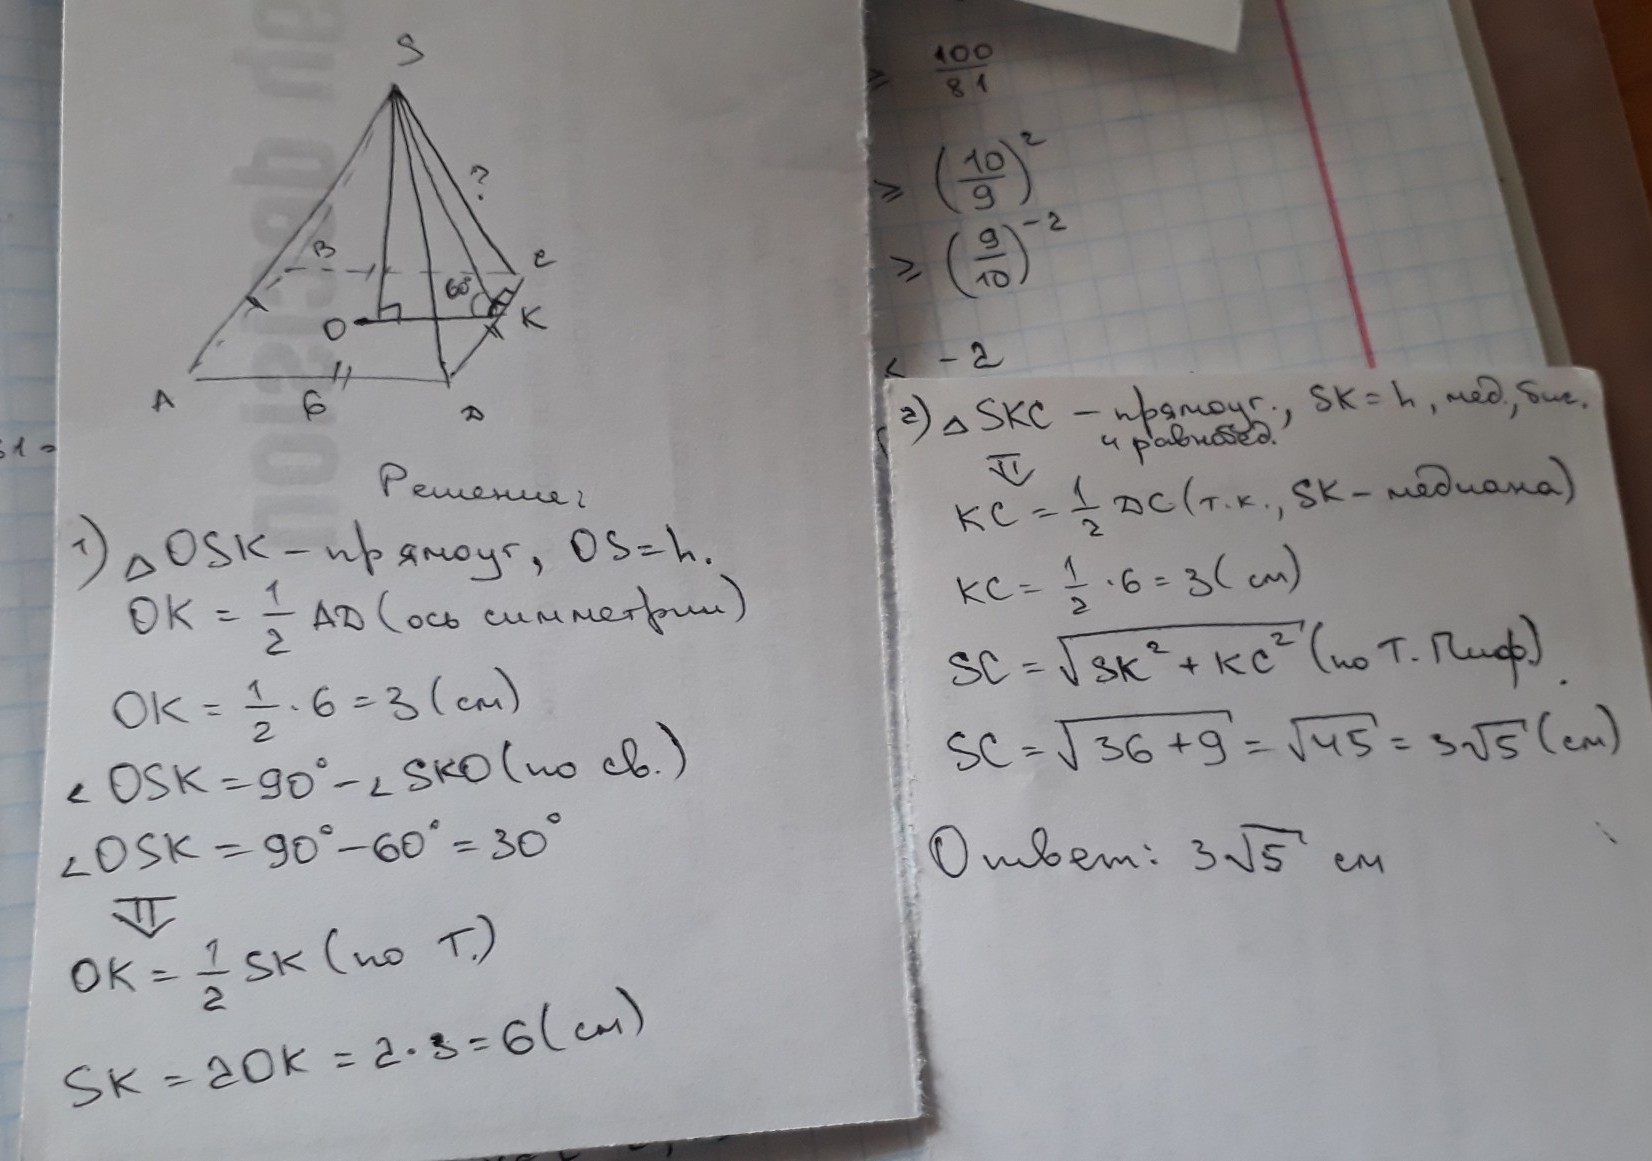 S
?
B
C
60°
O
K
A
6
D
Решение:
1) △OSK – прямоуг, OS = h.
OK = 1/2 AD (ось симметрии)
OK = 1/2 · 6 = 3 (см)
∠OSK = 90° – ∠SKO (по св.)
∠OSK = 90° – 60° = 30°
⇓
OK = 1/2 SK (по т.)
SK = 2OK = 2 · 3 = 6 (см)
100/81
≥ (10/9)²
≥ (9/10)⁻²
-2
2) △SKC – прямоуг., SK = h, мед., бис.
и равнобед.
⇓
KC = 1/2 DC (т.к., SK – медиана)
KC = 1/2 · 6 = 3 (см)
SC = √(SK² + KC²) (по т. Пиф.).
SC = √(36 + 9) = √45 = 3√5 (см)
Ответ: 3√5 см